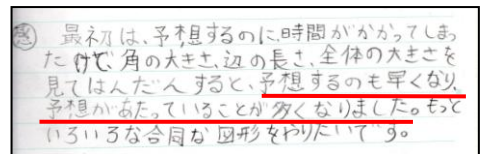 感 最初は、予想するのに時間がかかってしまっ
たけど、角の大きさ、辺の長さ、全体の大きさを
見てはんだんすると、予想するのも早くなり、
予想があたっていることが多くなりました。もっと
いろいろな合同な図形をやりたいです。